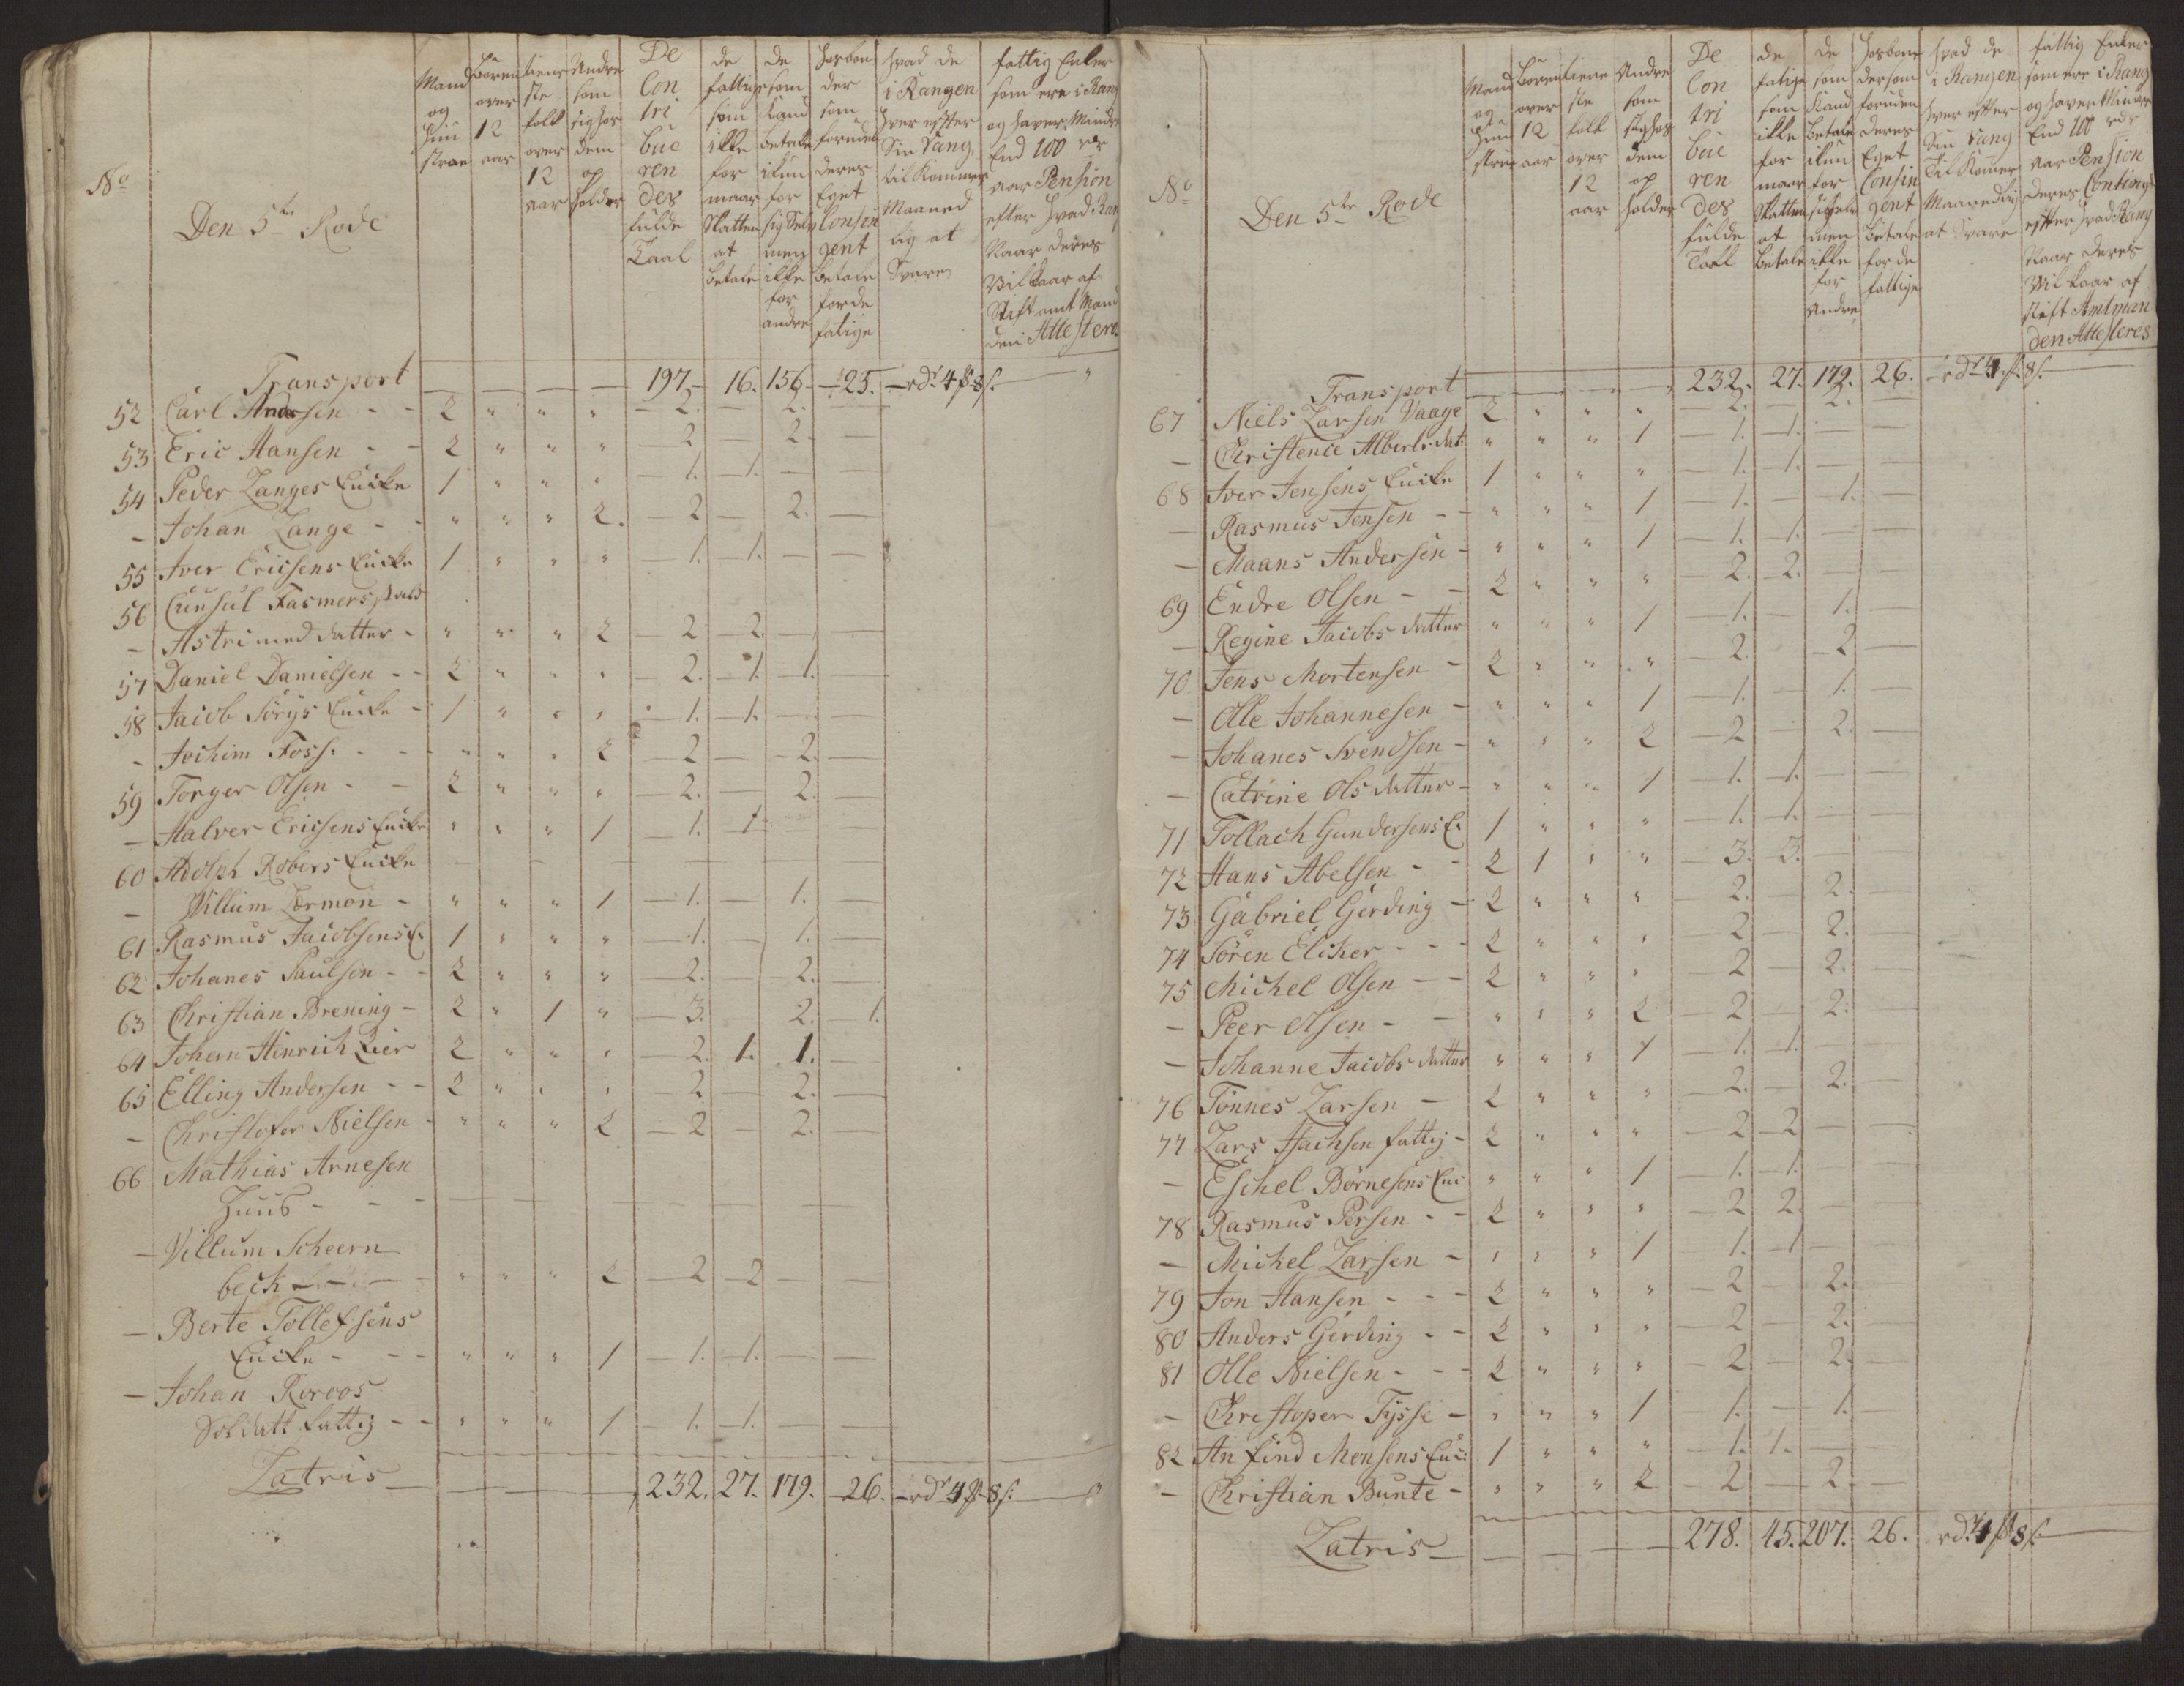 No
Den 5te Rode
Mand og hustrue
Børen over 12 aar
tiene ste folk over 12 aar
Andre som sig hos dem op holder
De Con tri bue ren des fulde Taal
de fattige som ikke for maar Skatten at betale
de som kand betale ikun for sig Selv men ikke for andre
hosbon der som foruden deres Eget Consin gent betale for de fatige
hvad de i Rangen hver effter Sin Rang til Kommer Maaned lig at Svare
fattig Enker som ere i Rang og haver Mindre End 100 rdr aar Pension efter hvad Rang Naar deres Vilkaar af Stift amt Mand den Attestere
Transport — — — — 197. 16. 156 — 25. — rdr 4 ß 8 s. — "
52 Carl Andersen - - 2 " " " — 2. — 2. —
53 Eric Hansen - - 2 " " " — 2 — 2. —
54 Peder Langes Encke 1 " " " — 1. — 1. — —
- Johan Lange - - " " " 2. — 2 — 2. —
55 Iver Ericsens Encke 1 " " " — 1. — 1. — —
56 Cunsul Fasmers
- Astri med datter - " " " 2 2 2. — —
57 Daniel Danielsen - - 2 " " " — 2. — 1. — 1.
58 Jacob Sörys Encke - 1 " " " — 1. — 1. — —
- Jochim Foss: - - " " " 2 — 2 — 2. —
59 Torger Olsen - - 2 " " " — 2. — 2. —
— Halver Ericsens Encke " " " 1 — 1. 1
60 Adolph Robers Encke — — — — — — —
— Willum Lormon - " " " 1 — 1. — 1. —
61 Rasmus Jacobsens E: 1 " " " — 1. — 1. —
62 Johanes Paulsen - - 2 " " " — 2. — 2. —
63 Christian Brening - 2 " 1 " — 3. 2. 1.
64 Johan Hinrich Lier 2 " " " — 2. 1. 1. —
65 Elling Andersen - - 2 " " " — 2 — 2. —
- Christofer Nielsen - " " " 2 — 2 — 2. —
66 Mathias Arnesen
Huus - - -
— Villum Scheern
beck — — — " " " 2 — 2 — 2 — —
— Berte Tollefsens
Encke - - - " " " 1 — 1. — 1. — —
— Johan Roroos
Soldatt fattig - - " " " 1 — 1. — 1. — —
Latris — — — — 232. 27. 179. 26. — rdr 4 ß 8 s: — "
No
Den 5te Rode
Mand og hustrue
Børen over 12 aar
tiene ste folk over 12 aar
Andre som sig hos dem op holder
De Con tri bue ren des fulde Taal
de fatige som ikke for maar Skatten at betale
de som Kand betale ikun for sig selv men ikke for Andre
hosbon der som foruden deres Eget Consin gent betale for de fattige
hvad de i Rangen hver effter Sin Rang Til Komer Maanedlig at Svare
fattig Enker som ere i Rang og haver Mindre End 100 rdr aar Pension deres Contingt effter hvad Rang Naar deres Vilkaar af Stift Amtman den Attesteres
Transport — — — — 232. 27. 179. 26. — rdr 4 ß 8 s.
67 Niels Larsen Vaage 2. " " " — 2. — 2. —
— Christence Alberts dat: " " " 1 — 1. — 1. — —
68 Iver Jensens Encke 1 " " " — 1. — 1. — —
— Rasmus Jensen - - " " " 1 — 1. — 1. —
— Maans Andersen - " " " 1 — 1. — 1. — —
69 Endre Olsen - - 2 " " " — 2. — 2. — —
— Regine Jacobs datter " " " 1 — 1. — 1. —
70 Jens Mortensen - 2 " " " — 2. — 2 —
— Olle Johannesen - " " " 1 — 1. — 1. —
— Johanes Svendsen - " " " 2 — 2 — 2. —
— Catrine Ols datter - " " " 1 — 1. — 1. — —
71 Tollach Gundersens E: 1 " " " — 1. — 1. — —
72 Hans Abelsen - - 2 1 " " — 3. 3. —
73 Gabriel Gerding - 2 " " " — 2. — 2. —
74 Sören Elicker - - - 2 " " " — 2 — 2. —
75 Michel Olsen - - 2 " " " 2 — 2. —
— Peer Olsen - - " " " 2 — 2 — 2. —
— Johanne Jacobs datter " " " 1 — 1. — 1. —
76 Tönnes Larsen - 2 " " " — 2. — 2. —
77 Lars Isachsen fattig - 2 " " " — 2 — 2 — —
— Eschel Börnesens Enc " " " 1 — 1. — 1. — —
78 Rasmus Persen - - 2 " " " — 2 2. —
— Michel Larsen - " " " 1 1. — 1 —
79 Jon Hansen - - - 2 " " " — 2 — 2. —
80 Anders Gerding - - 2 " " " — 2 — 2. —
81 Olle Nielsen - - - 2 " " " — 2 — 2. —
— Christoper Tysse - " " " 1 — 1. — 1. —
82 An find Monsens Enc: 1 " " " — 1. 1. —
— Christian Bunte - " " " 2 — 2 — 2. —
Latris — — — — 278. 45. 207. 26. rdr 4 ß 8 s.